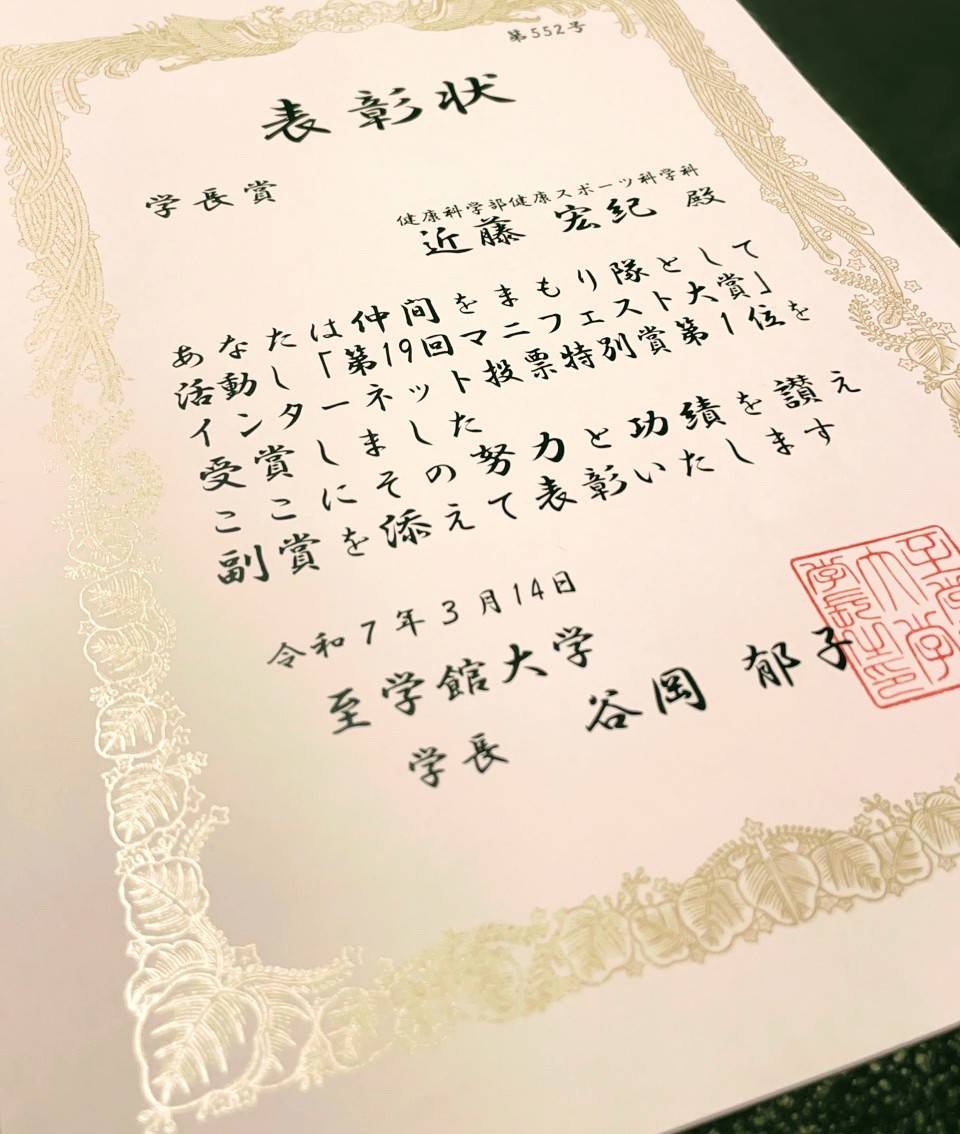 第552号
表彰状
学長賞
健康科学部健康スポーツ科学科
近藤 宏紀 殿
あなたは仲間をまもり隊として
活動し「第19回マニフェスト大賞」
インターネット投票特別賞第1位を
受賞しました
ここにその努力と功績を讃え
副賞を添えて表彰いたします
令和7年3月14日
至学館大学
学長 谷岡 郁子